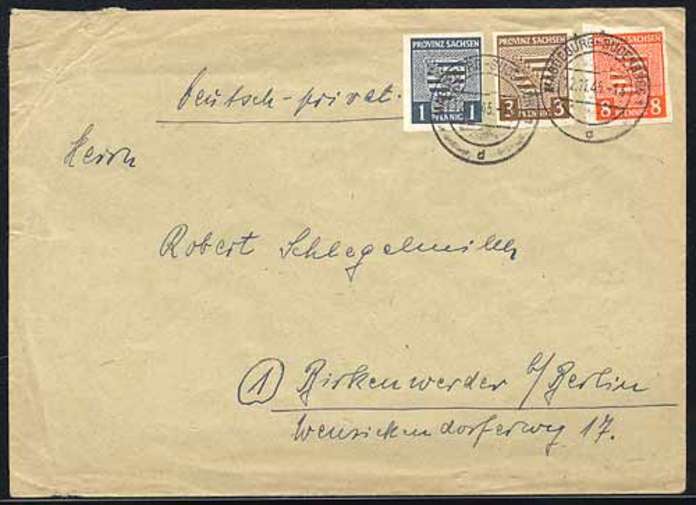 PROVINZ SACHSEN
1 1
PFENNIG
PROVINZ SACHSEN
3 3
PFENNIG
SACHSEN
8 8
MAGDEBURG-SUDENBURG
d
Deutsch-privat.
Herrn
Robert Schlegelmilch
1 Birkenwerder b/Berlin
Wensickendorferweg 17.